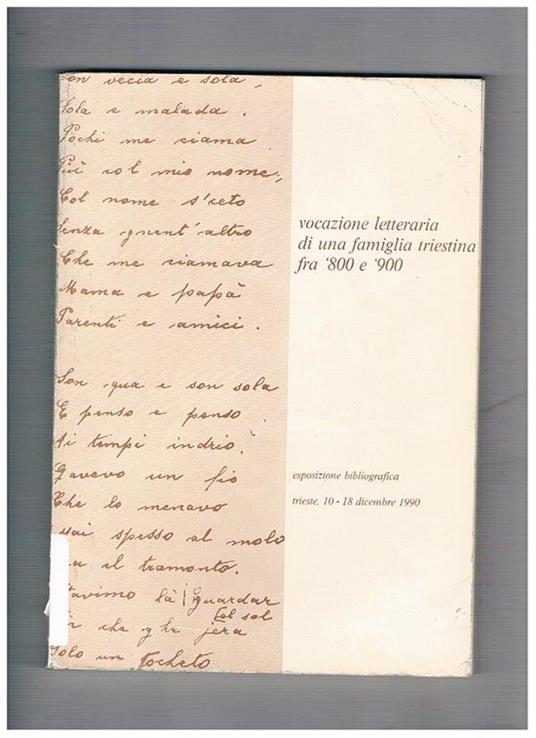 Son vecia e sola,
Sola e malada.
Pochi me ciama
Più col mio nome,
Col nome s'ceto
Senza gnent'altro
Che me ciamava
Mama e papà
Parenti e amici.
Son qua e son sola
E penso e penso
Ai tempi indrio.
Gavevo un fio
Che lo menavo
spesso al molo
il tramonto.
là guardar
che ghe jera
Col sol
Solo un tocheto
vocazione letteraria
di una famiglia triestina
fra '800 e '900
esposizione bibliografica
trieste, 10 - 18 dicembre 1990